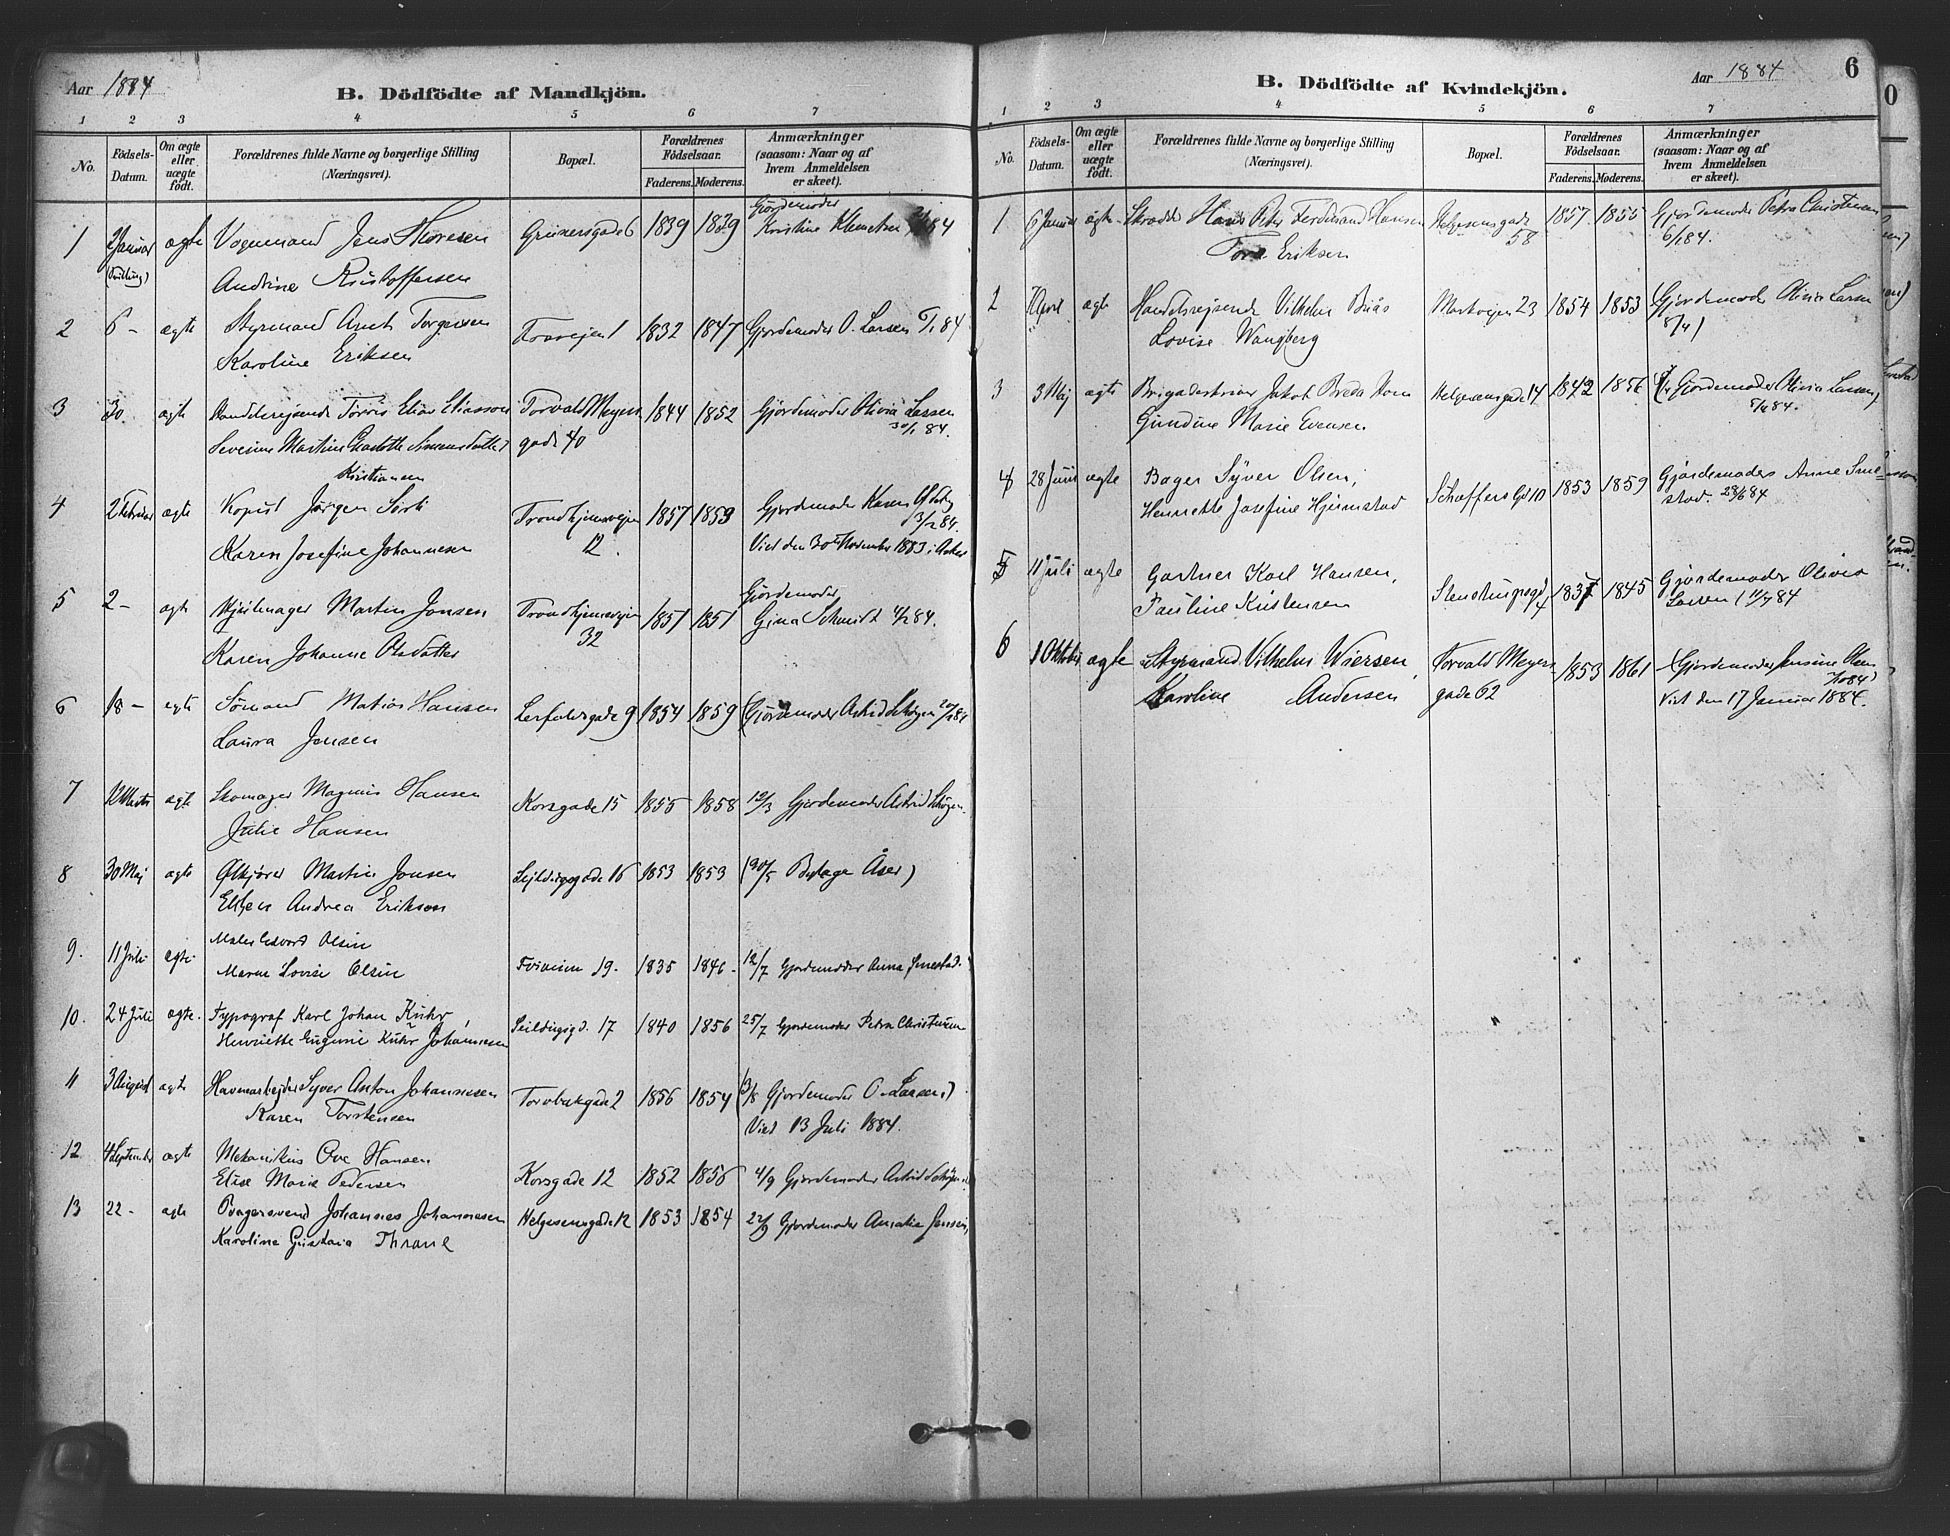 Aar 1884
B. Dödfödte af Mandkjön.
1 2 3 4 5 6 7
No. Födsels-Datum. Om ægte eller uægte födt. Forældrenes fulde Navne og borgerlige Stilling (Næringsvei). Bopæl. Forældrenes Födselsaar. Faderens. Moderens. Anmærkninger (saasom: Naar og af hvem Anmeldelsen er skeet).
1 2 Januar (Tvilling) ægte Vognmand Jens Thoresen Grünersgade 6 1839 1839 Gjordemoder Kristine
Andrine Kristoffersen
2 6 - ægte Styrmand Torgersen 1 1832 1847 Gjordemoder O. Larsen 84
Karoline Eriksen
3 30. ægte Handelsrejsende Elias Eliassen Torvald Meyers gade 40 1844 1852 Gjordemoder Olivia Larsen 30/1 84.
Severine Martine Charlotte Simensdatter
Kristiansen
4 2 Februar ægte Kopist Jørgen Trondhjemsveien 12. 1857 1859 Gjordemoder Karen 3/2 84.
Karen Josefine Johannesen Viet den 30te November 1883 i Aker
5 2 - ægte Hjulmager Martin Jonsen Trondhjemsveien 32 1857 1857 Gjordemoder Gina Schmidt 4/2 84.
Karen Johanne Olsdatter
6 18 - ægte Sömand Matias Hansen 9 1854 1859 (Gjordemoder Astrid
Laura Jensen
7 12 Marts ægte Skomager Magnus Hansen Korsgade 15 1855 1858 12/3 Gjordemoder Astrid
Julie Hansen
8 30 Maj ægte Ølkjörer Martin Jonsen Seildugsgade 16 1853 1853 (30/5 Åser)
Ellen Andrea Eriksen
9. 11 Juli ægte Maler Edvard Olsen 19. 1835 1846 12/7 Gjordemoder Anna Smestad.
Maren Lovise Olsen
10. 24 Juli ægte. Typograf Karl Johan Kuhr, Seildugsgd. 17 1840 1856 25/7 Gjordemoder Petra Christensen
Henriette Eugenie Kuhr Johannesen
11 3 August ægte Havnearbejder Syver Anton Johannesen Torvbakgade 2 1856 1854 (3/8 Gjordemoder O. Larsen.)
Karen Torstensen Viet 13 Juli 1884.
12 4 September ægte Mekanikus Ove Hansen Korsgade 12 1852 1856 4/9 Gjordemoder Astrid
Elise Marie Pedersen
13 22 - ægte Bagersvend Johannes Johannesen Helgesensgade 12 1853 1854 22/9 Gjordemoder Amalie Jensen,
Karoline Gustava Thrane
Aar 1884 6
B. Dödfödte af Kvindekjön.
1 2 3 4 5 6 7
No. Födsels-Datum. Om ægte eller uægte födt. Forældrenes fulde Navne og borgerlige Stilling (Næringsvei). Bopæl. Forældrenes Födselsaar. Faderens. Moderens. Anmærkninger (saasom: Naar og af hvem Anmeldelsen er skeet).
1 6 Januar ægte Skrædder Hans Peter Ferdinand Hansen Helgesensgade 58 1857 1855 Gjordemoder Petra Christensen 6/1 84.
Tora Eriksen
2 April ægte Handelsrejsende Vilhelm Markvejen 23 1854 1853 (Gjordemoder Olivia Larsen 8/4)
Lovise Wangberg
3 3 Maj ægte Jakob Helgesensgade 14 1842 1856 Gjordemoder Olivia Larsen,
Gundine Marie Evensen
4 28 Juni ægte Bager Syver Olsen, Schoffers Gd 10 1853 1859 Gjordemoder Anne Smestad 28/6 84
Henriette Josefine Hjelmstad
5 11 Juli ægte Gartner Karl Hansen, Stenstrupsgd 4 1837 1845 Gjordemoder Olivia Larsen (11/7 84
Pauline Kristensen
6 1 Oktober ægte Styrmand Vilhelm Wiersen, Torvald Meyers gade 62 1853 1861 (Gjordemoder Jensine Olsen 1/10 84)
Karoline Andersen Viet den 17 Januar 1884.